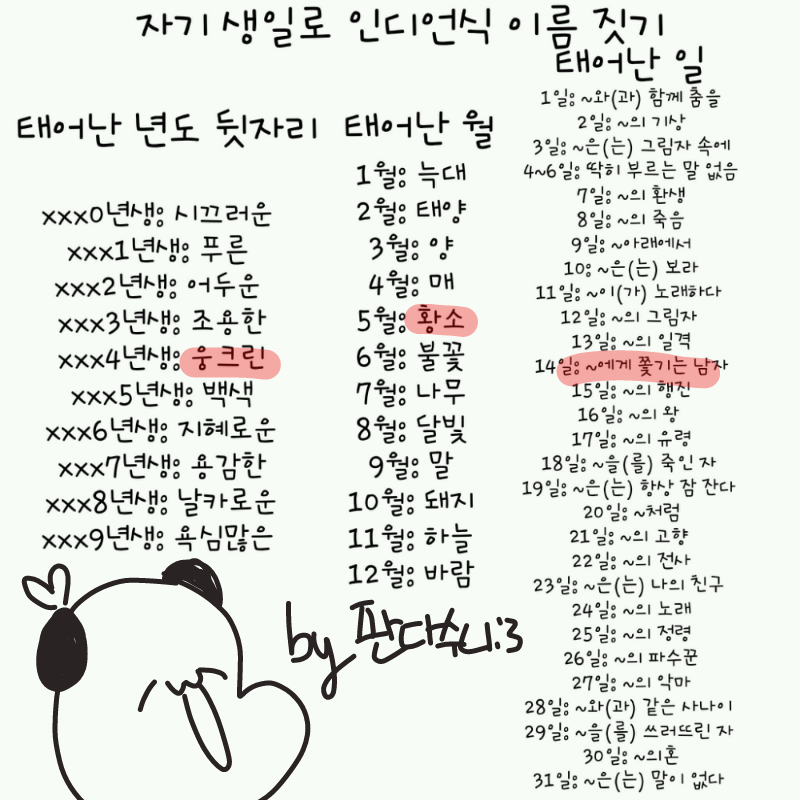 자기 생일로 인디언식 이름 짓기
태어난 년도 뒷자리
xxx0년생: 시끄러운
xxx1년생: 푸른
xxx2년생: 어두운
xxx3년생: 조용한
xxx4년생: 웅크린
xxx5년생: 백색
xxx6년생: 지혜로운
xxx7년생: 용감한
xxx8년생: 날카로운
xxx9년생: 욕심많은
태어난 월
1월: 늑대
2월: 태양
3월: 양
4월: 매
5월: 황소
6월: 불꽃
7월: 나무
8월: 달빛
9월: 말
10월: 돼지
11월: 하늘
12월: 바람
태어난 일
1일: ~와(과) 함께 춤을
2일: ~의 기상
3일: ~은(는) 그림자 속에
4~6일: 딱히 부르는 말 없음
7일: ~의 환생
8일: ~의 죽음
9일: ~아래에서
10: ~은(는) 보라
11일: ~이(가) 노래하다
12일: ~의 그림자
13일: ~의 일격
14일: ~에게 쫓기는 남자
15일: ~의 행진
16일: ~의 왕
17일: ~의 유령
18일: ~을(를) 죽인 자
19일: ~은(는) 항상 잠 잔다
20일: ~처럼
21일: ~의 고향
22일: ~의 전사
23일: ~은(는) 나의 친구
24일: ~의 노래
25일: ~의 정령
26일: ~의 파수꾼
27일: ~의 악마
28일: ~와(과) 같은 사나이
29일: ~을(를) 쓰러뜨린 자
30일: ~의혼
31일: ~은(는) 말이 없다
by 판다수니:3